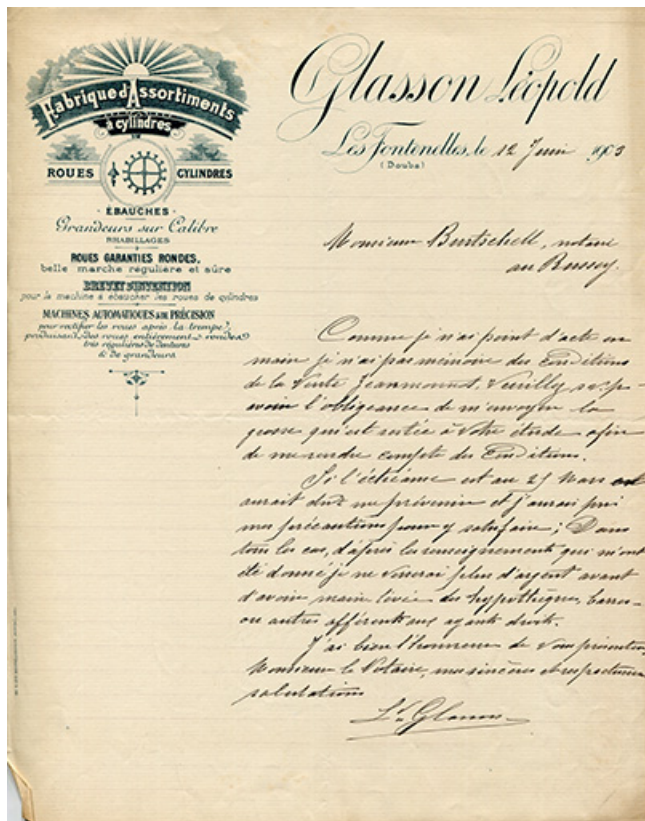 Fabrique d'Assortiments
à cylindres
ROUES CYLINDRES
ÉBAUCHES
Grandeurs sur Calibre
RHABILLAGES
ROUES GARANTIES RONDES,
belle marche régulière et sûre
BREVET D'INVENTION
pour la machine à ébaucher les roues de cylindres
MACHINES AUTOMATIQUES DE PRÉCISION
pour rectifier les roues après la trempe,
produisant des roues entièrement rondes
très régulières de dentures
& de grandeurs
Glasson Léopold
Les Fontenelles, le 12 Juin 1903
(Doubs)
Monsieur Burtschell, notaire
au Russey.
Comme je n'ai point d'acte en
main je n'ai pas mémoire des Conditions
de la Vente Jeanmonnot, Vuilly
avoir l'obligeance de m'envoyer la
grosse qui est restée à votre étude afin
de me rendre compte des Conditions.
Si l'échéance est au 25 Mars on
aurait dut me prévenir et j'aurais pris
mes précautions pour y satisfaire; Dans
tous les cas, d'après les renseignements qui m'ont
été donné je ne verserai plus d'argent avant
d'avoir main levée des hypothèques,
ou autres afférents aux ayants droits.
J'ai bien l'honneur de vous présenter,
Monsieur le Notaire, mes sincères et respectueuses
salutations
Ld Glasson